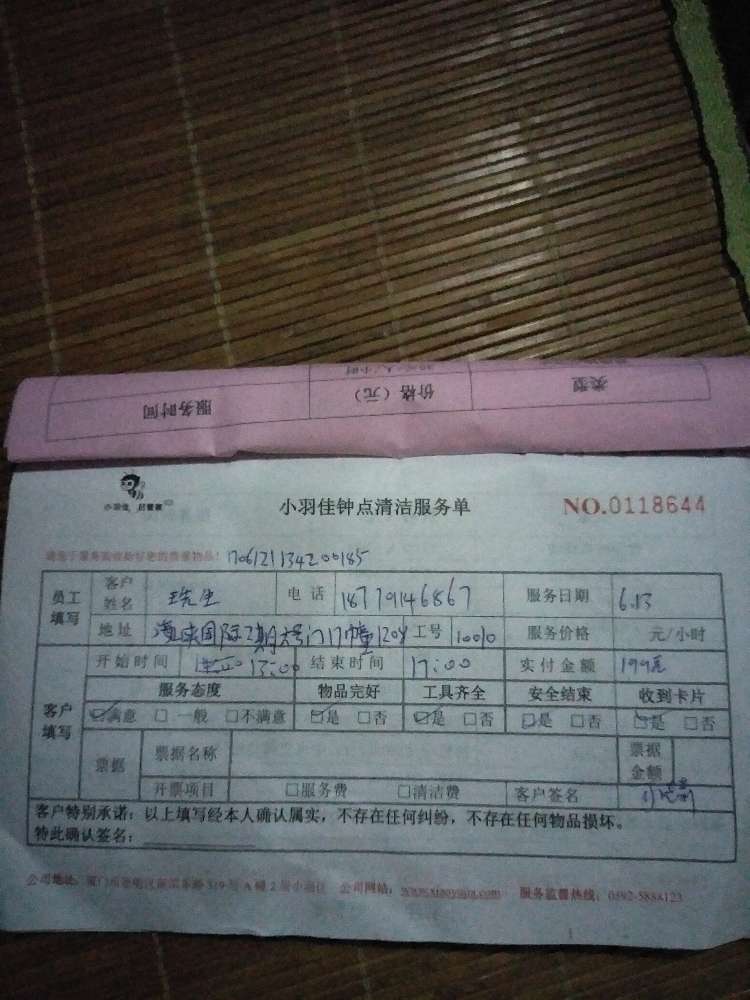 类型 价格（元） 服务时间
小羽佳 好管家
小羽佳钟点清洁服务单 NO.0118644
1706121134200185
员工填写 客户姓名 电话 18779146867 服务日期 6.13
地址 海峡国际2期大号门17幢1204 工号 10010 服务价格 元/小时
客户填写 开始时间 13:00 结束时间 17:00 实付金额 199元
服务态度 物品完好 工具齐全 安全结束 收到卡片
☑满意 □一般 □不满意 ☑是 □否 ☑是 □否 ☑是 □否 ☑是 □否
票据 票据名称 票据金额
开票项目 □服务费 □清洁费 客户签名
客户特别承诺：以上填写经本人确认属实，不存在任何纠纷，不存在任何物品损坏。
特此确认签名：
公司地址： 319号A幢2层小羽佳 公司网站：www.xiaoyujia.com 服务监督热线：0592-5888123